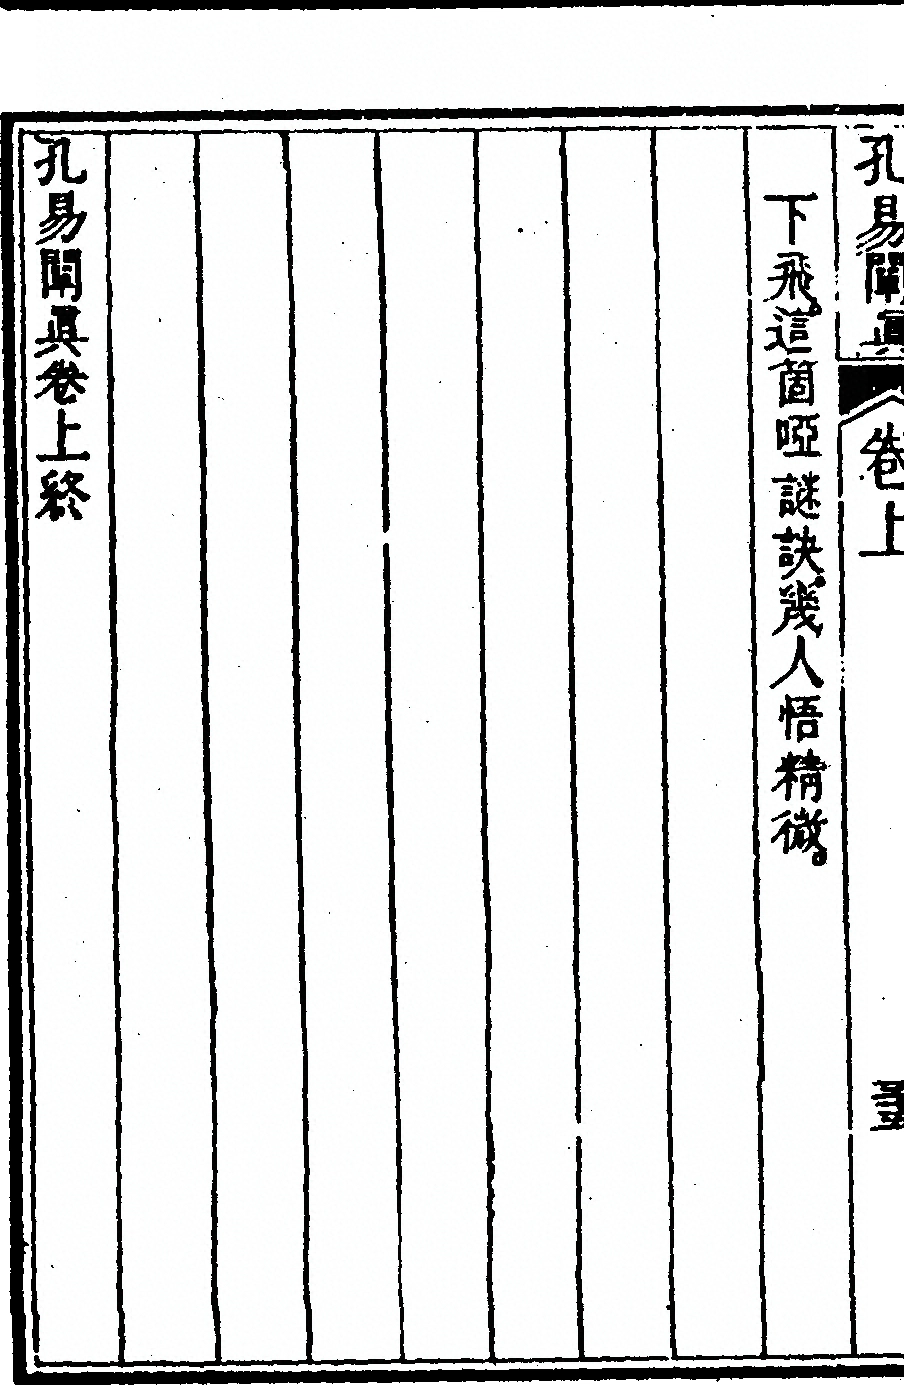 孔易闡眞
卷上
下飛。這箇啞謎訣。幾人悟精微。
孔易闡眞卷上終